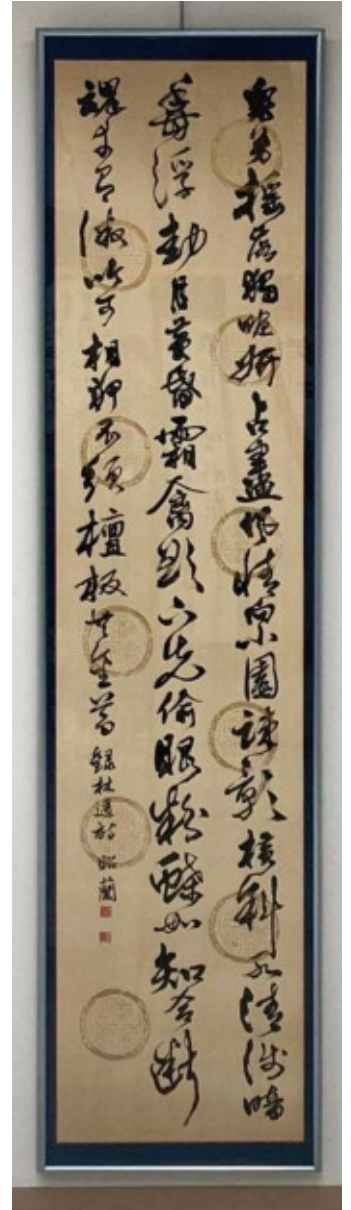 衆芳揺落獨暄妍占盡風情向小園疎影横斜水清浅暗
香浮動月黄昏霜禽欲下先偷眼粉蝶如知合断
魂幸有微吟可相狎不須檀板共金尊 録林逋詩 昭蘭